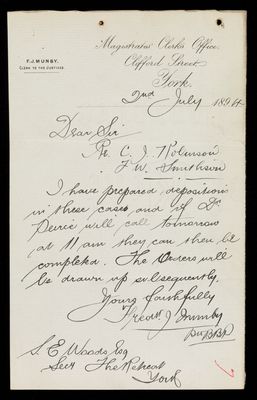 F.J. MUNBY.
CLERK TO THE JUSTICES.
Magistrates' Clerks Office,
Clifford Street
York.
2nd July 1894
Dear Sir
Re. C. J. Robinson
F W. Smithson
I have prepared depositions
in these cases and if Dr
Peirce will call tomorrow
at 11 am they can then be
completed. The Orders will
be drawn up subsequently.
Yours faithfully
Fredk J Munby
S. E. Woods Esq
Secy The Retreat
York